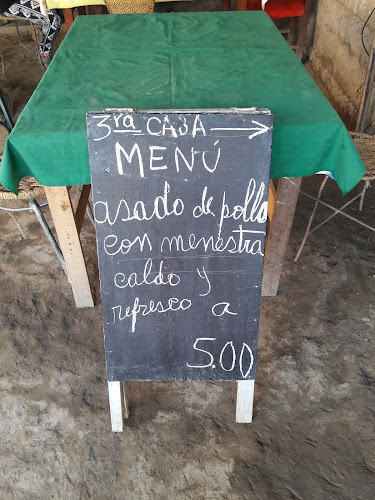 3ra CASA →
MENÚ
asado de pollo
con menestra
caldo y
refresco a
5.00